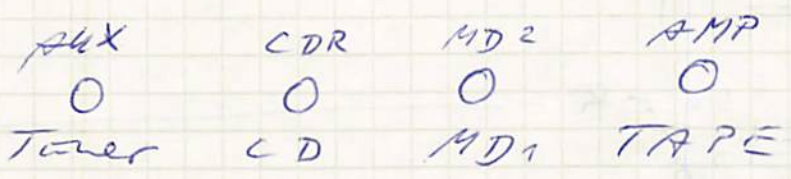 AUX CDR MD2 AMP
Tuner CD MD1 TAPE